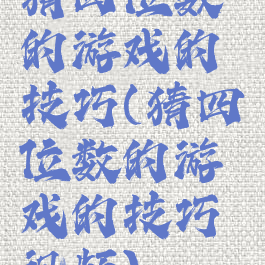 猜四位数
的游戏的
技巧(猜四
位数的游
戏的技巧
视频)